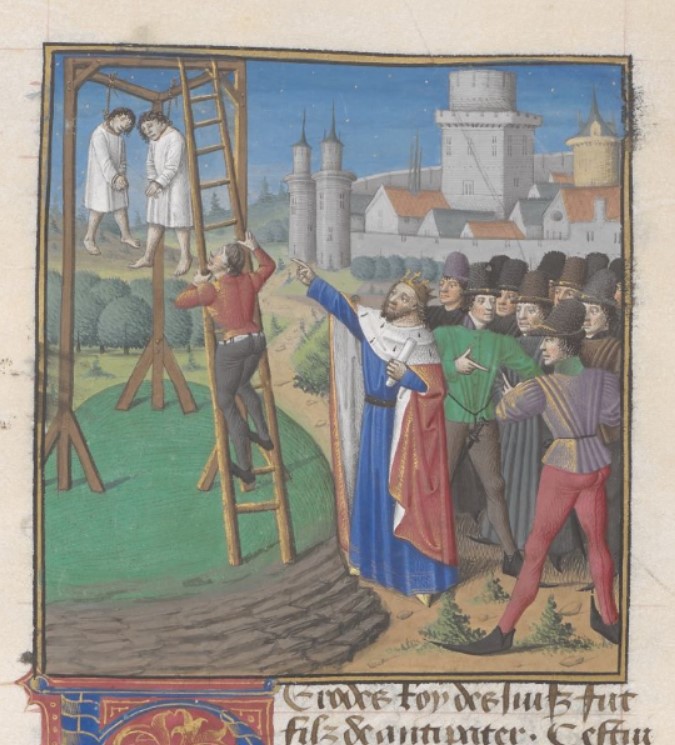 Erodes roy des iuifz fut
filz de antipater. Cestui